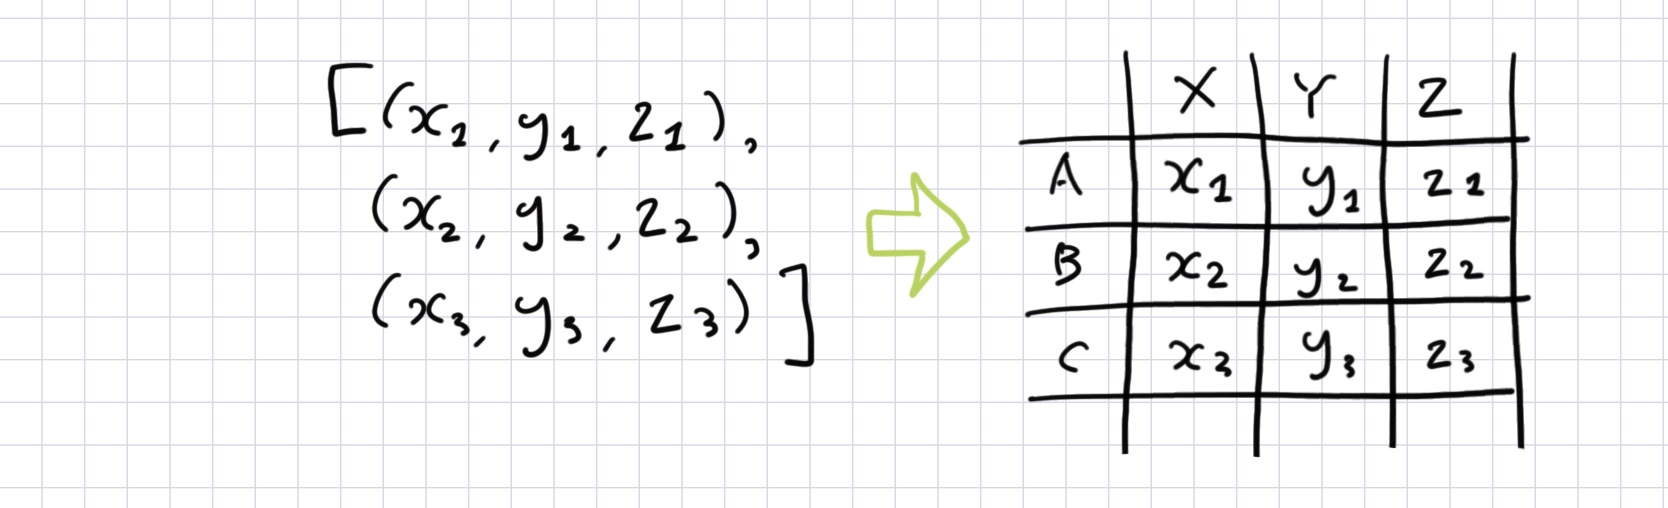 [(x₁, y₁, z₁),
(x₂, y₂, z₂),
(x₃, y₃, z₃)]
X Y Z
A x₁ y₁ z₁
B x₂ y₂ z₂
C x₃ y₃ z₃